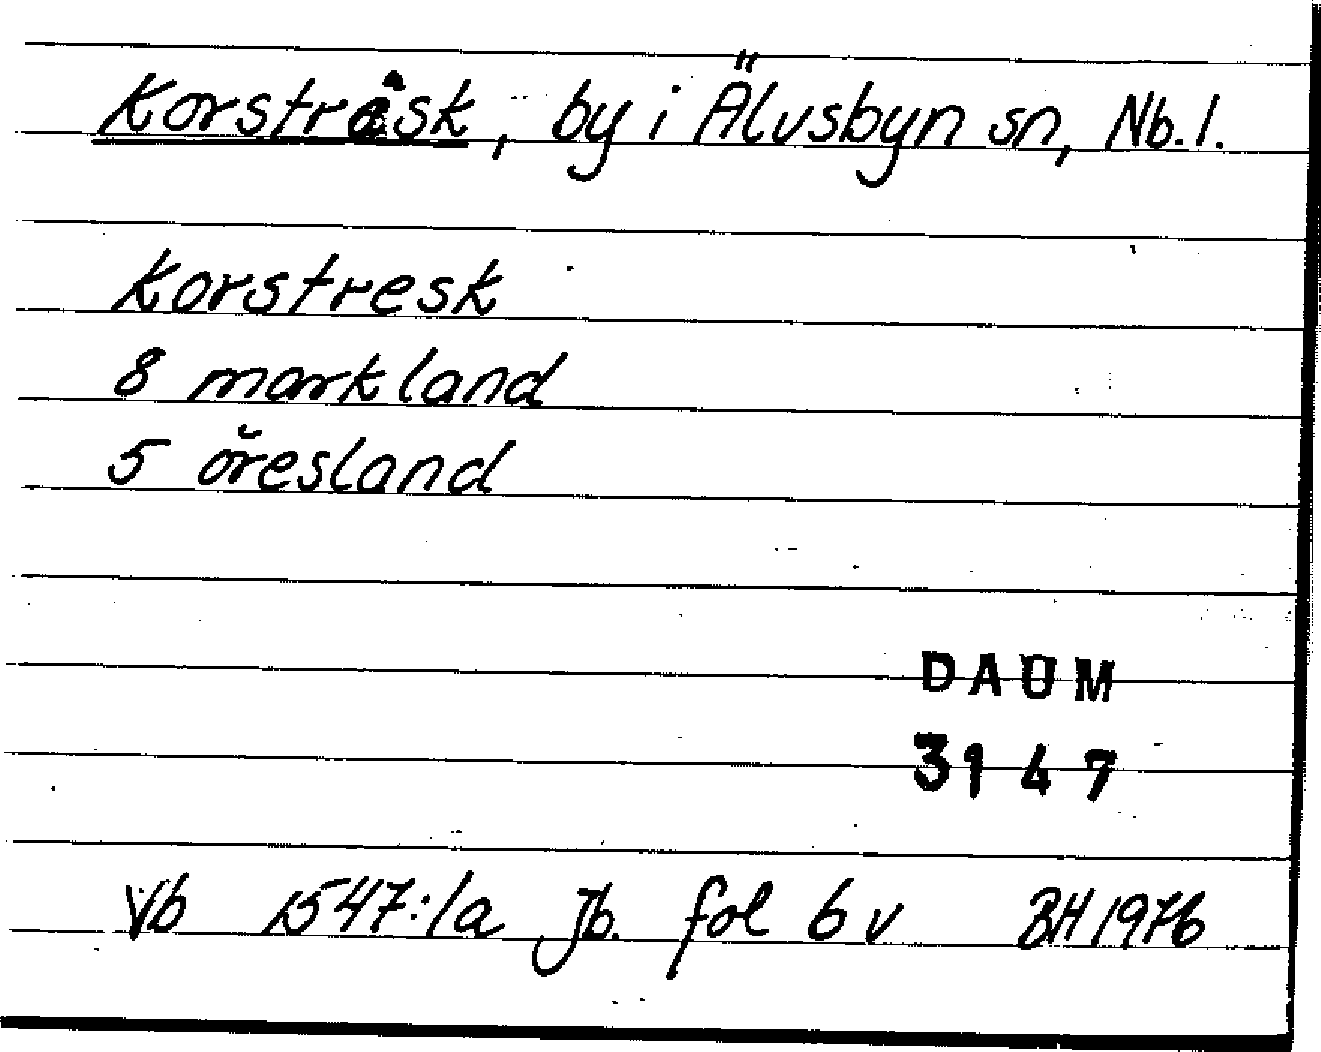 Korstråsk, by i Älvsbyn sn, Nb. l.
Korstresk
8 markland
5 öresland
DAUM
3147
Vb 1547:1a Jb. fol 6 v BH 1976